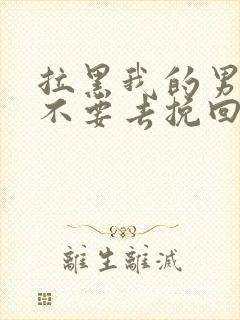 拉黑我的男
不要去挽回
離生離滅